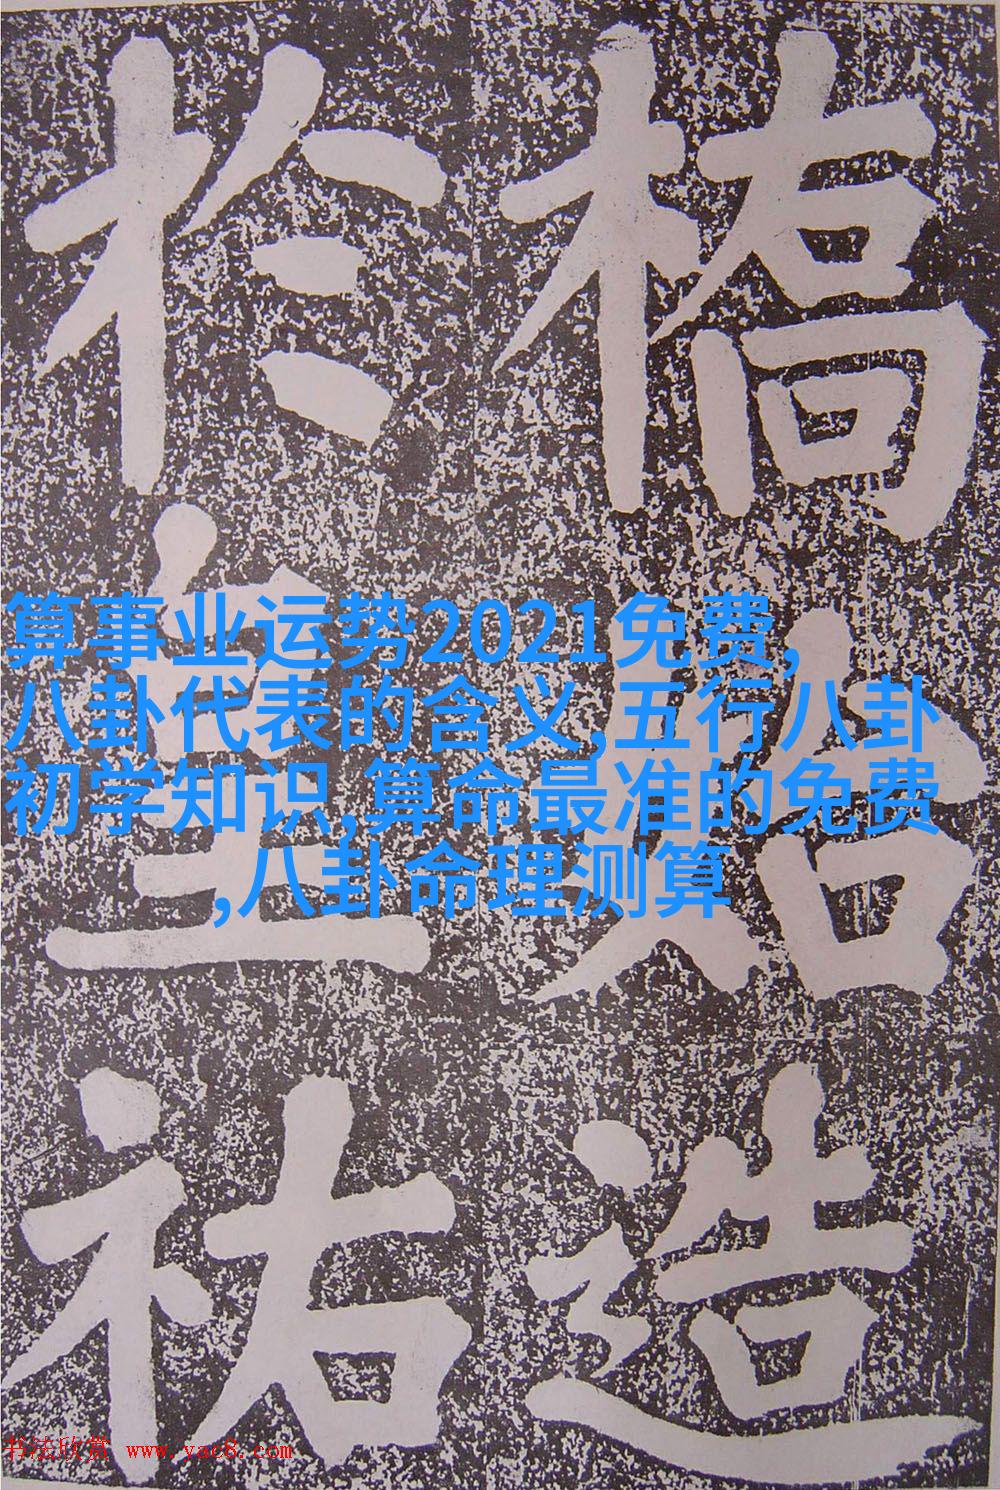 橋始造
於皇祐
算事业运势2021免费,
八卦代表的含义,五行八卦
初学知识,算命最准的免费
,八卦命理测算
书法欣赏 www.yac8.com